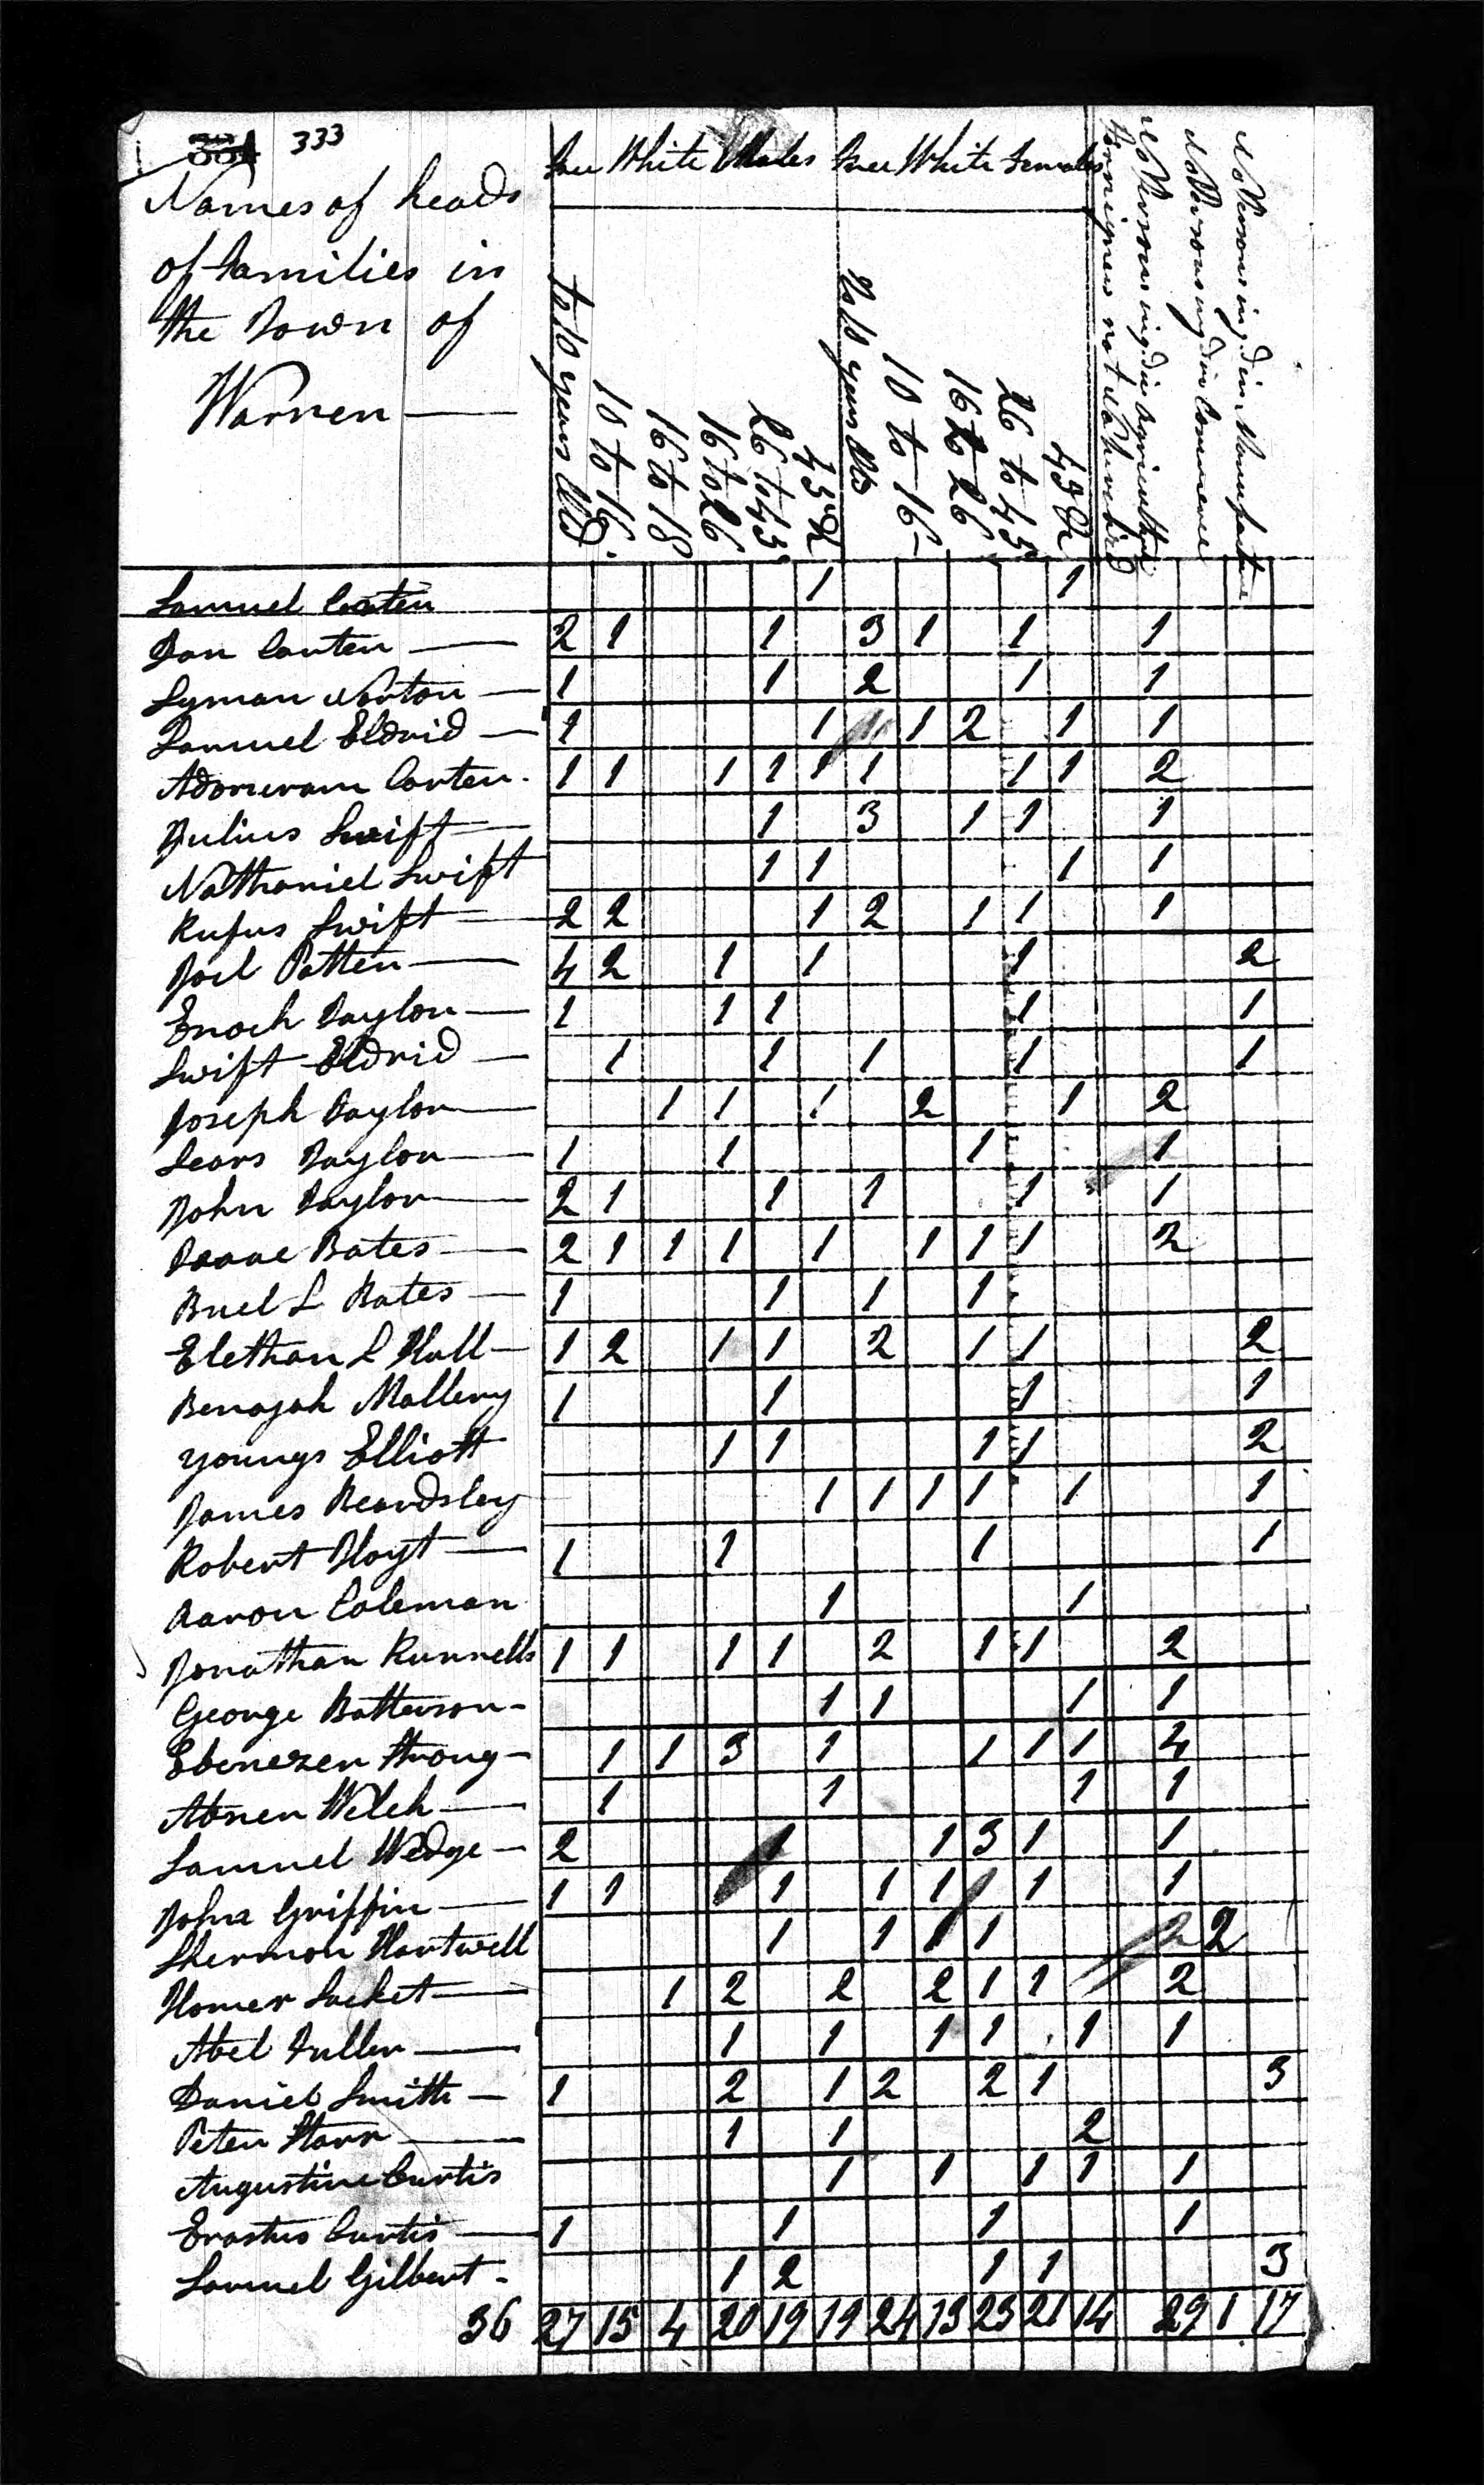 334 333
Names of heads
of Families in
the Town of
Warren
Free White Males Free White Females
to 10 years Old
10 to 16
16 to 18
16 to 26
26 to 45
45 &
To 10 years Old
10 to 16
16 to 26
26 to 45
45 &
Foreigners not Naturalized
No Persons ingd in Agriculture
No Persons ingd in Commerce
No Persons ingd in Manufacture
Samuel Carter 1 1
Dan Carter 2 1 1 3 1 1 1
Lyman Norton 1 1 2 1 1
Samuel Eldrid 1 1 1 2 1 1
Adoniram Carter 1 1 1 1 1 1 1 1 2
Julius Swift 1 3 1 1 1
Nathaniel Swift 1 1 1 1
Rufus Swift 2 2 1 2 1 1 1
Joel Patten 4 2 1 1 1 2
Enoch Taylor 1 1 1 1 1
Swift Eldrid 1 1 1 1 1
Joseph Taylor 1 1 1 2 1 2
Sears Taylor 1 1 1 1
John Taylor 2 1 1 1 1 1
Isaac Bates 2 1 1 1 1 1 1 1 2
Buel L Bates 1 1 1 1
Elethan L Hall 1 2 1 1 2 1 1 2
Benajah Mallery 1 1 1 1
Youngs Elliott 1 1 1 1 2
James Beardsley 1 1 1 1 1 1
Robert Hoyt 1 1 1 1
Aaron Coleman 1 1
Jonathan Runnells 1 1 1 1 2 1 1 2
George Batterson 1 1 1 1
Ebenezer Strong 1 1 3 1 1 1 1 4
Abner Welch 1 1 1 1
Samuel Wedge 2 1 1 3 1 1
John Griffin 1 1 1 1 1 1 1 1
Sherman Hartwell 1 1 1 1 2 2
Homer Sacket 1 2 2 2 1 1 2
Abel Fuller 1 1 1 1 1 1
Daniel Smith 1 2 1 2 2 1 3
Peter Starr 1 1 2
Augustine Curtis 1 1 1 1 1
Erastus Curtis 1 1 1 1
Samuel Gilbert 1 2 1 1 3
36 27 15 4 20 19 19 24 13 23 21 14 29 1 17